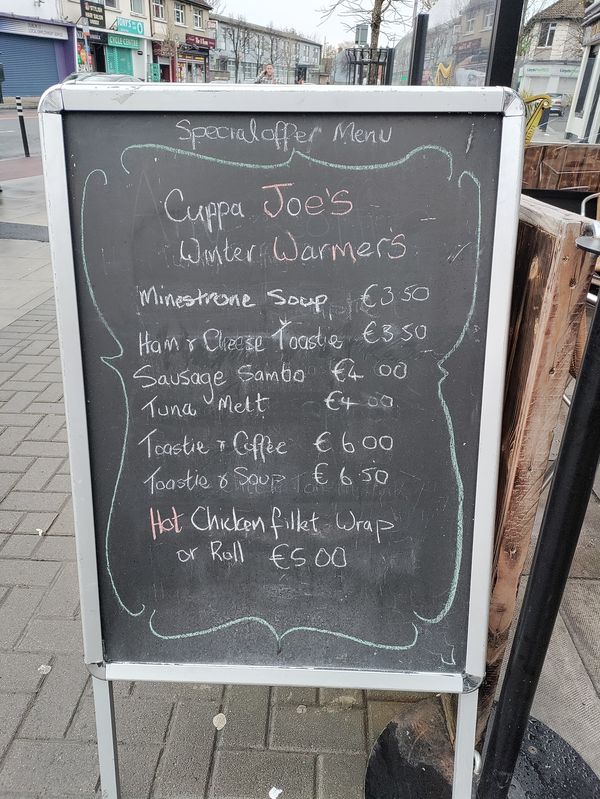 Special offer Menu
Cuppa Joe's
Winter Warmer's
Minestrone Soup €3 50
Ham & Cheese Toastie €3 50
Sausage Sambo €4 00
Tuna Melt €4 00
Toastie & Coffee €6 00
Toastie & Soup €6 50
Hot Chicken fillet Wrap
or Roll €5 00
CYCLE CENTRE